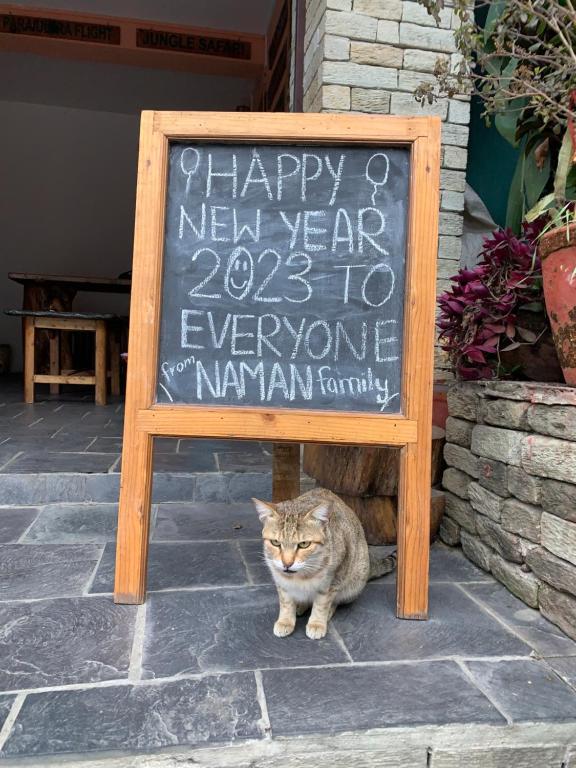 PARAJULI FLIGHT
JUNGLE SAFARI
HAPPY
NEW YEAR
2023 TO
EVERYONE
from NAMAN family